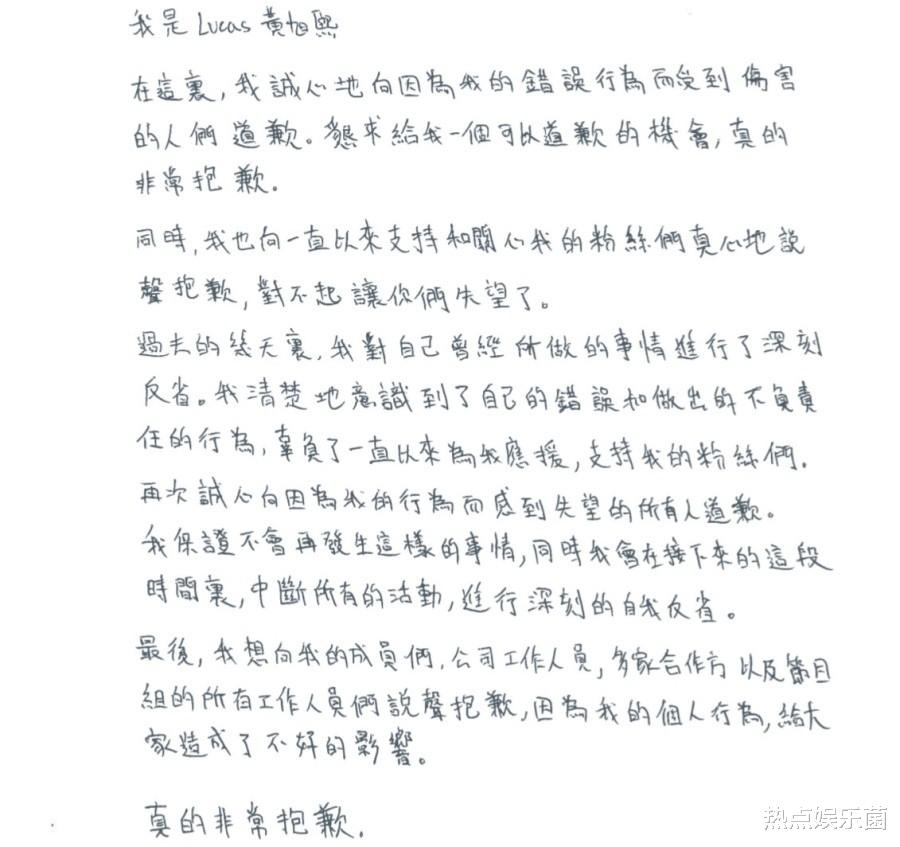 我是 Lucas 黃旭熙
在這裏，我誠心地向因為我的錯誤行為而受到傷害
的人們道歉。懇求給我一個可以道歉的機會，真的
非常抱歉.
同時，我也向一直以來支持和關心我的粉絲們真心地說
聲抱歉，對不起讓你們失望了。
過去的幾天裏，我對自己曾經所做的事情進行了深刻
反省。我清楚地意識到了自己的錯誤和做出的不負責
任的行為，辜負了一直以來為我應援，支持我的粉絲們.
再次誠心向因為我的行為而感到失望的所有人道歉。
我保證不會再發生這樣的事情，同時我會在接下來的這段
時間裏，中斷所有的活動，進行深刻的自我反省。
最後，我想向我的成員們，公司工作人員，多家合作方以及節目
組的所有工作人員們說聲抱歉，因為我的個人行為，給大
家造成了不好的影響。
真的非常抱歉.
热点娱乐菌